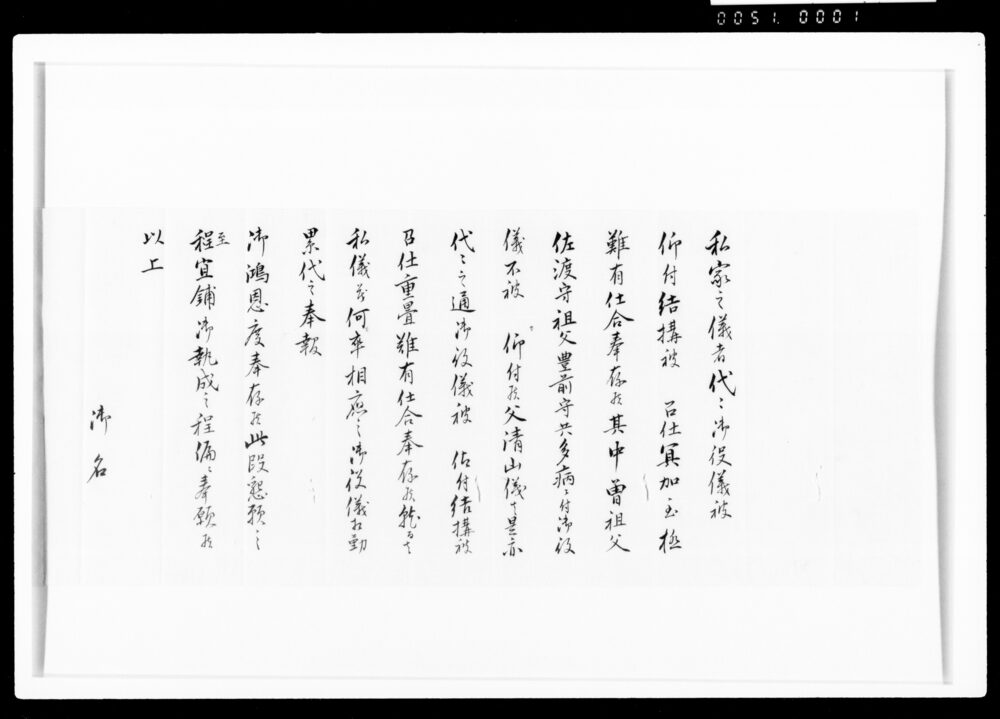 0051. 0001
私家之儀者代々御役儀被
仰付結構被　召仕冥加至極
難有仕合奉存候其中曽祖父
佐渡守祖父豊前守共多病ニ付御役
儀不被　仰付候父清山儀も是亦
代々之通御役儀被　仰付結構被
召仕重畳難有仕合奉存候就而者
私儀茂何卒相応之御役儀相勤
累代之奉報
御鴻恩度奉存候此段懇願之
至
程宜鋪御執成之程偏ニ奉願候
以上
御名